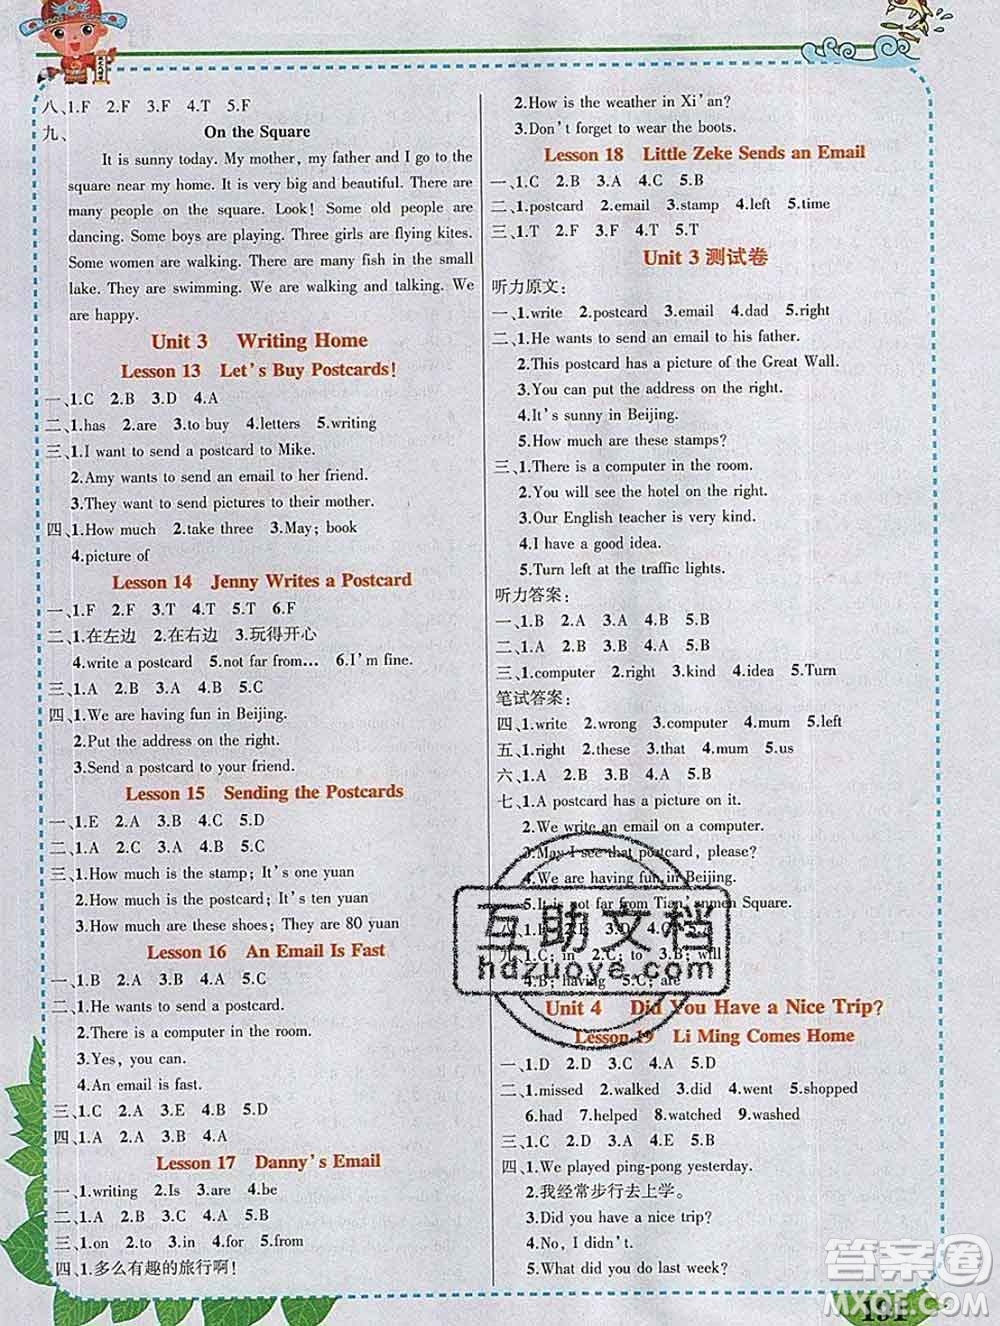 八、1.F 2.F 3.F 4.T 5.F
九、 On the Square
It is sunny today. My mother, my father and I go to the
square near my home. It is very big and beautiful. There are
many people on the square. Look! Some old people are
dancing. Some boys are playing. Three girls are flying kites.
Some women are walking. There are many fish in the small
lake. They are swimming. We are walking and talking. We
are happy.
Unit 3 Writing Home
Lesson 13 Let's Buy Postcards!
一、1.C 2.B 3.D 4.A
二、1.has 2.are 3.to buy 4.letters 5.writing
三、1.I want to send a postcard to Mike.
2.Amy wants to send an email to her friend.
3.They want to send pictures to their mother.
四、1.How much 2.take three 3.May; book
4.picture of
Lesson 14 Jenny Writes a Postcard
一、1.F 2.F 3.T 4.T 5.T 6.F
二、1.在左边 2.在右边 3.玩得开心
4.write a postcard 5.not far from… 6.I'm fine.
三、1.A 2.B 3.A 4.B 5.C
四、1.We are having fun in Beijing.
2.Put the address on the right.
3.Send a postcard to your friend.
Lesson 15 Sending the Postcards
一、1.E 2.A 3.B 4.C 5.D
二、1.A 2.A 3.C 4.B 5.B
三、1.How much is the stamp; It's one yuan
2.How much is the postcard; It's ten yuan
3.How much are these shoes; They are 80 yuan
Lesson 16 An Email Is Fast
一、1.B 2.A 3.B 4.A 5.C
二、1.He wants to send a postcard.
2.There is a computer in the room.
3.Yes, you can.
4.An email is fast.
三、1.C 2.A 3.E 4.B 5.D
四、1.A 2.A 3.B 4.A
Lesson 17 Danny's Email
一、1.writing 2.Is 3.are 4.be
二、1.A 2.B 3.A 4.A 5.B
三、1.on 2.to 3.in 4.for 5.from
四、1.多么有趣的旅行啊!
2.How is the weather in Xi'an?
3.Don't forget to wear the boots.
Lesson 18 Little Zeke Sends an Email
一、1.C 2.B 3.A 4.C 5.B
二、1.postcard 2.email 3.stamp 4.left 5.time
三、1.T 2.F 3.T 4.F 5.T
Unit 3 测试卷
听力原文:
一、1.write 2.postcard 3.email 4.dad 5.right
二、1.He wants to send an email to his father.
2.This postcard has a picture of the Great Wall.
3.You can put the address on the right.
4.It's sunny in Beijing.
5.How much are these stamps?
三、1.There is a computer in the room.
2.You will see the hotel on the right.
3.Our English teacher is very kind.
4.I have a good idea.
5.Turn left at the traffic lights.
听力答案:
一、1.B 2.A 3.A 4.B 5.B
二、1.A 2.B 3.B 4.A 5.B
三、1.computer 2.right 3.kind 4.idea 5.Turn
笔试答案:
四、1.write 2.wrong 3.computer 4.mum 5.left
五、1.right 2.these 3.that 4.mum 5.us
六、1.A 2.B 3.A 4.B 5.A
七、1.A postcard has a picture on it.
2.We write an email on a computer.
3.May I see that postcard, please?
4.We are having fun in Beijing.
5.It is not far from Tian'anmen Square.
八、1.B 3.D 4.A 5.C
九、1.C; in 2.C; to 3.B; will
4.B; having 5.C; are
互助文档
hdzuoye.com
Unit 4 Did You Have a Nice Trip?
Lesson 19 Li Ming Comes Home
一、1.D 2.D 3.A 4.C 5.D
二、1.missed 2.walked 3.did 4.went 5.shopped
6.had 7.helped 8.watched 9.washed
三、1.C 2.D 3.A 4.E 5.B
四、1.We played ping-pong yesterday.
2.我经常步行去上学。
3.Did you have a nice trip?
4.No, I didn't.
5.What did you do last week?
答案圈
MXQE.COM
191